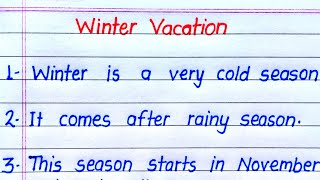 Winter Vacation
1- Winter is a very cold season
2- It comes after rainy season.
3- This season starts in November